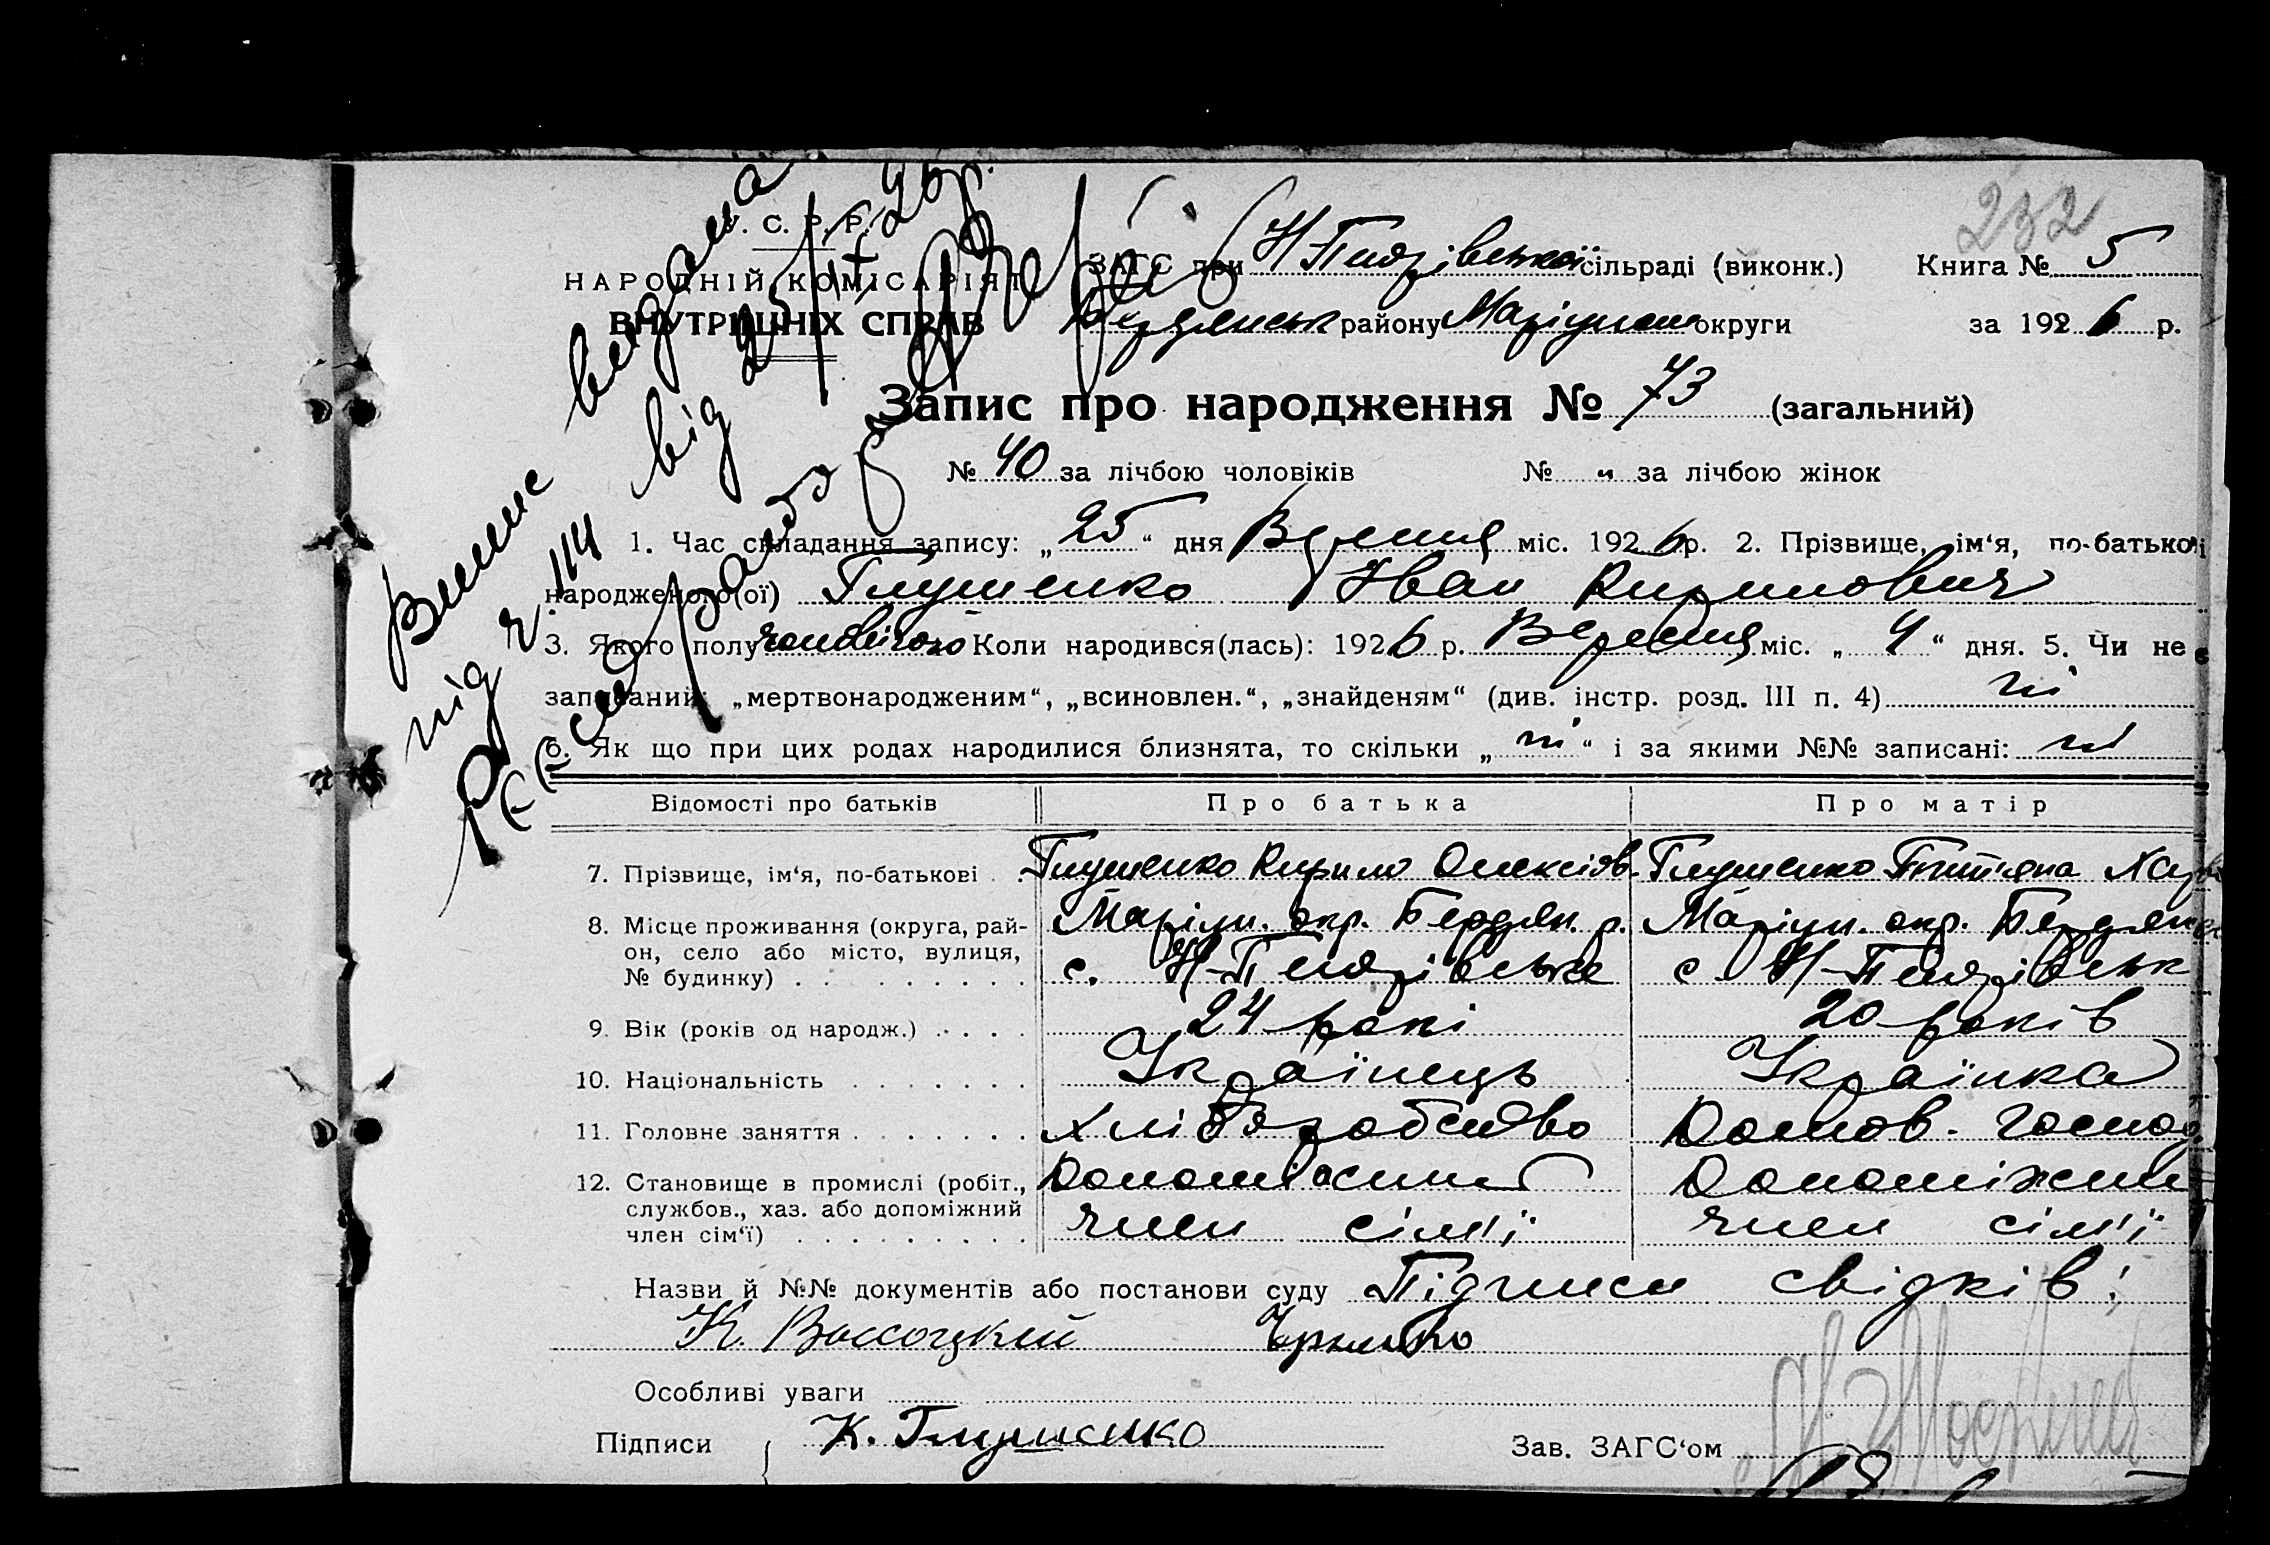 232
У. С. Р. Р.
НАРОДНІЙ КОМІСАРІЯТ
ВНУТРІШНІХ СПРАВ
ЗАГС при сільраді (виконк.) Книга № 5
Бердянськ району Маріупол округи за 1926 р.
Запис про народження № 73 (загальний)
№ 40 за лічбою чоловіків № „ за лічбою жінок
1. Час складання запису: „25“ дня Вересня міс. 1926 р. 2. Прізвище, ім‘я, по-батькові
народженого(ої) Глущенко Іван Кирилович
3. Якого полу чоловічого Коли народився(лась): 1926 р. Вересня міс. „4“ дня. 5. Чи не є
записаний: „мертвонародженим“, „всиновлен.“, „знайденям“ (див. інстр. розд. III п. 4) ні
6. Як що при цих родах народилися близнята, то скільки „ні“ і за якими №№ записані: ні
Відомості про батьків Про батька Про матір
7. Прізвище, ім‘я, по-батькові Глущенко Кирило Олексіов. Глущенко Тит'яна
8. Місце проживання (округа, рай-
он, село або місто, вулиця,
№ будинку)
Маріуп. окр. Бердян. р. Маріуп. окр. Бердянс
с. с.
9. Вік (років од народж.) 24 роки 20 років
10. Національність Українець Українка
11. Головне заняття Хліборобство Домов. господ.
12. Становище в промислі (робіт.,
службов., хаз. або допоміжний
член сім‘ї)
Допоміжний Допоміжний
член сім'ї член сім'ї
Назви й №№ документів або постанови суду Підписи свідків:
К. Высоцкий
Особливі уваги
Підписи К. Глущенко Зав. ЗАГС‘ом
Випис видана
під ч. 114 від 25/IX 26 р.